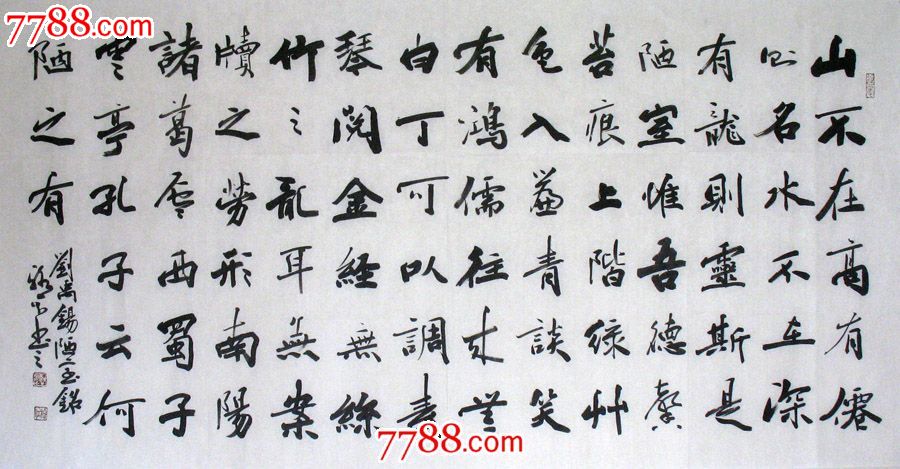 7788.com
山不在高有僊
则名水不在深
有龍則靈斯是
陋室惟吾德馨
苔痕上階緑艸
色入簾青談笑
有鴻儒往来無
白丁可以調素
琴閲金經無絲
竹之亂耳無案
牘之勞形南陽
諸葛廬西蜀子
雲亭孔子云何
陋之有
劉禹錫陋室銘
書之
7788.com
7788.com